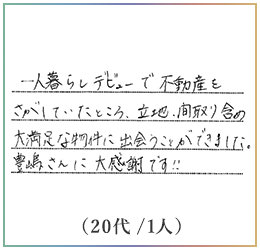 一人暮らしデビューで不動産を
さがしていたところ、立地、間取り含め
大満足な物件に出会うことができました。
豊嶋さんに大感謝です!!
(20代/1人)